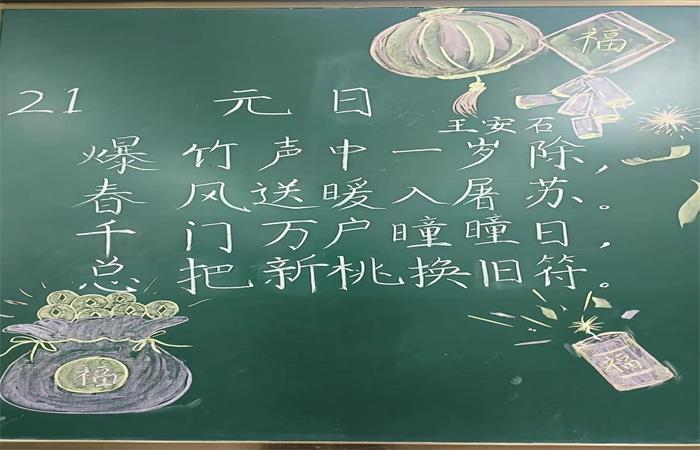 福
21 元日
王安石
爆竹声中一岁除，
春风送暖入屠苏。
千门万户曈曈日，
总把新桃换旧符。
福
福